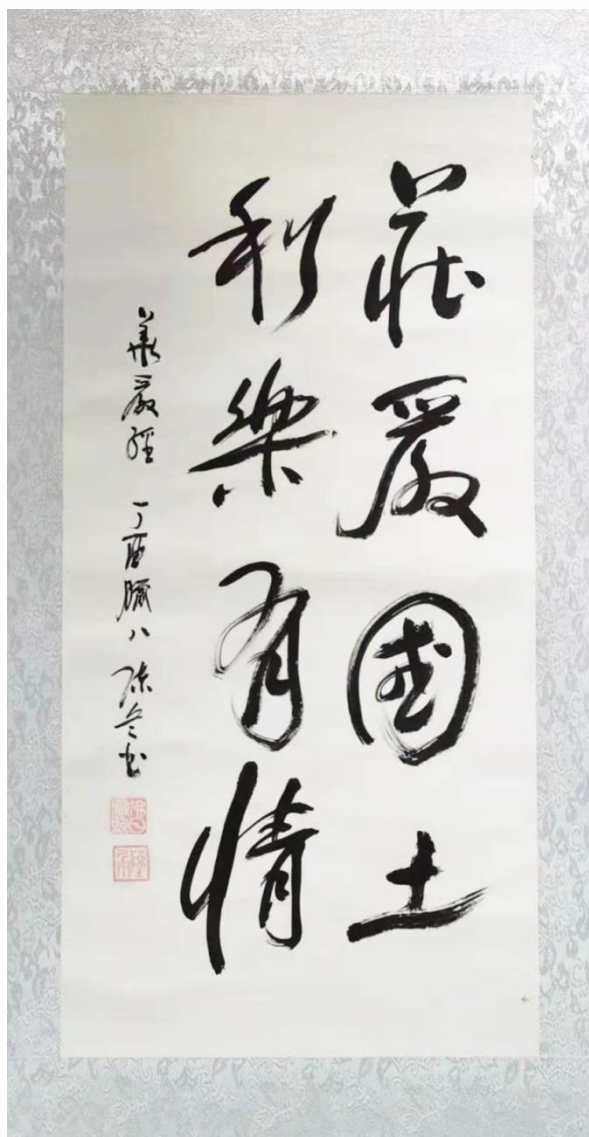 莊嚴國土
利樂有情
華嚴經 丁酉臘八 陳兵书